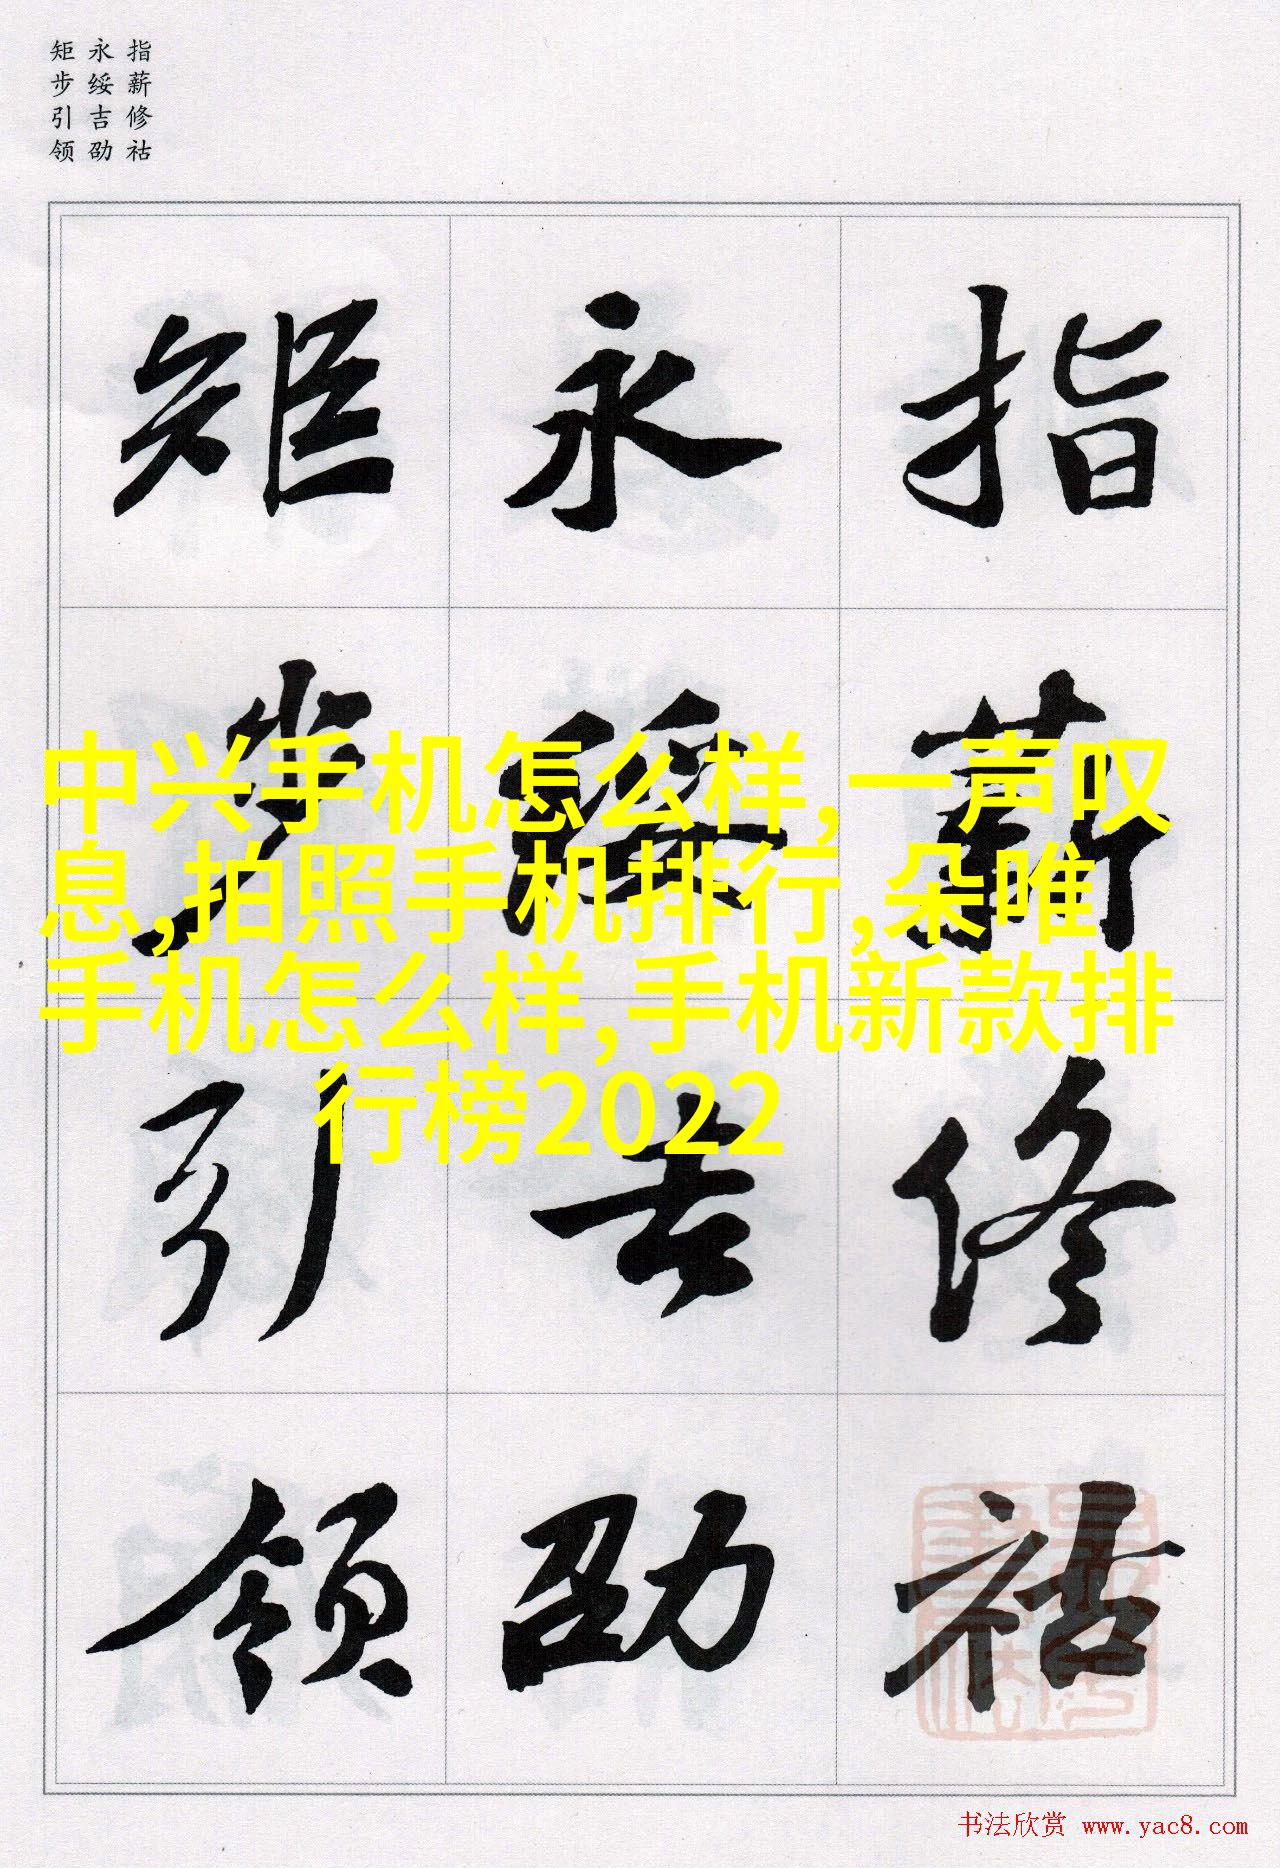 指薪修祜
永绥吉劭
矩步引领
指薪修祜
永绥吉劭
矩步引领
中兴手机怎么样,一声叹
息,拍照手机排行,朵唯
手机怎么样,手机新款排
行榜2022
书法欣赏 www.yac8.com